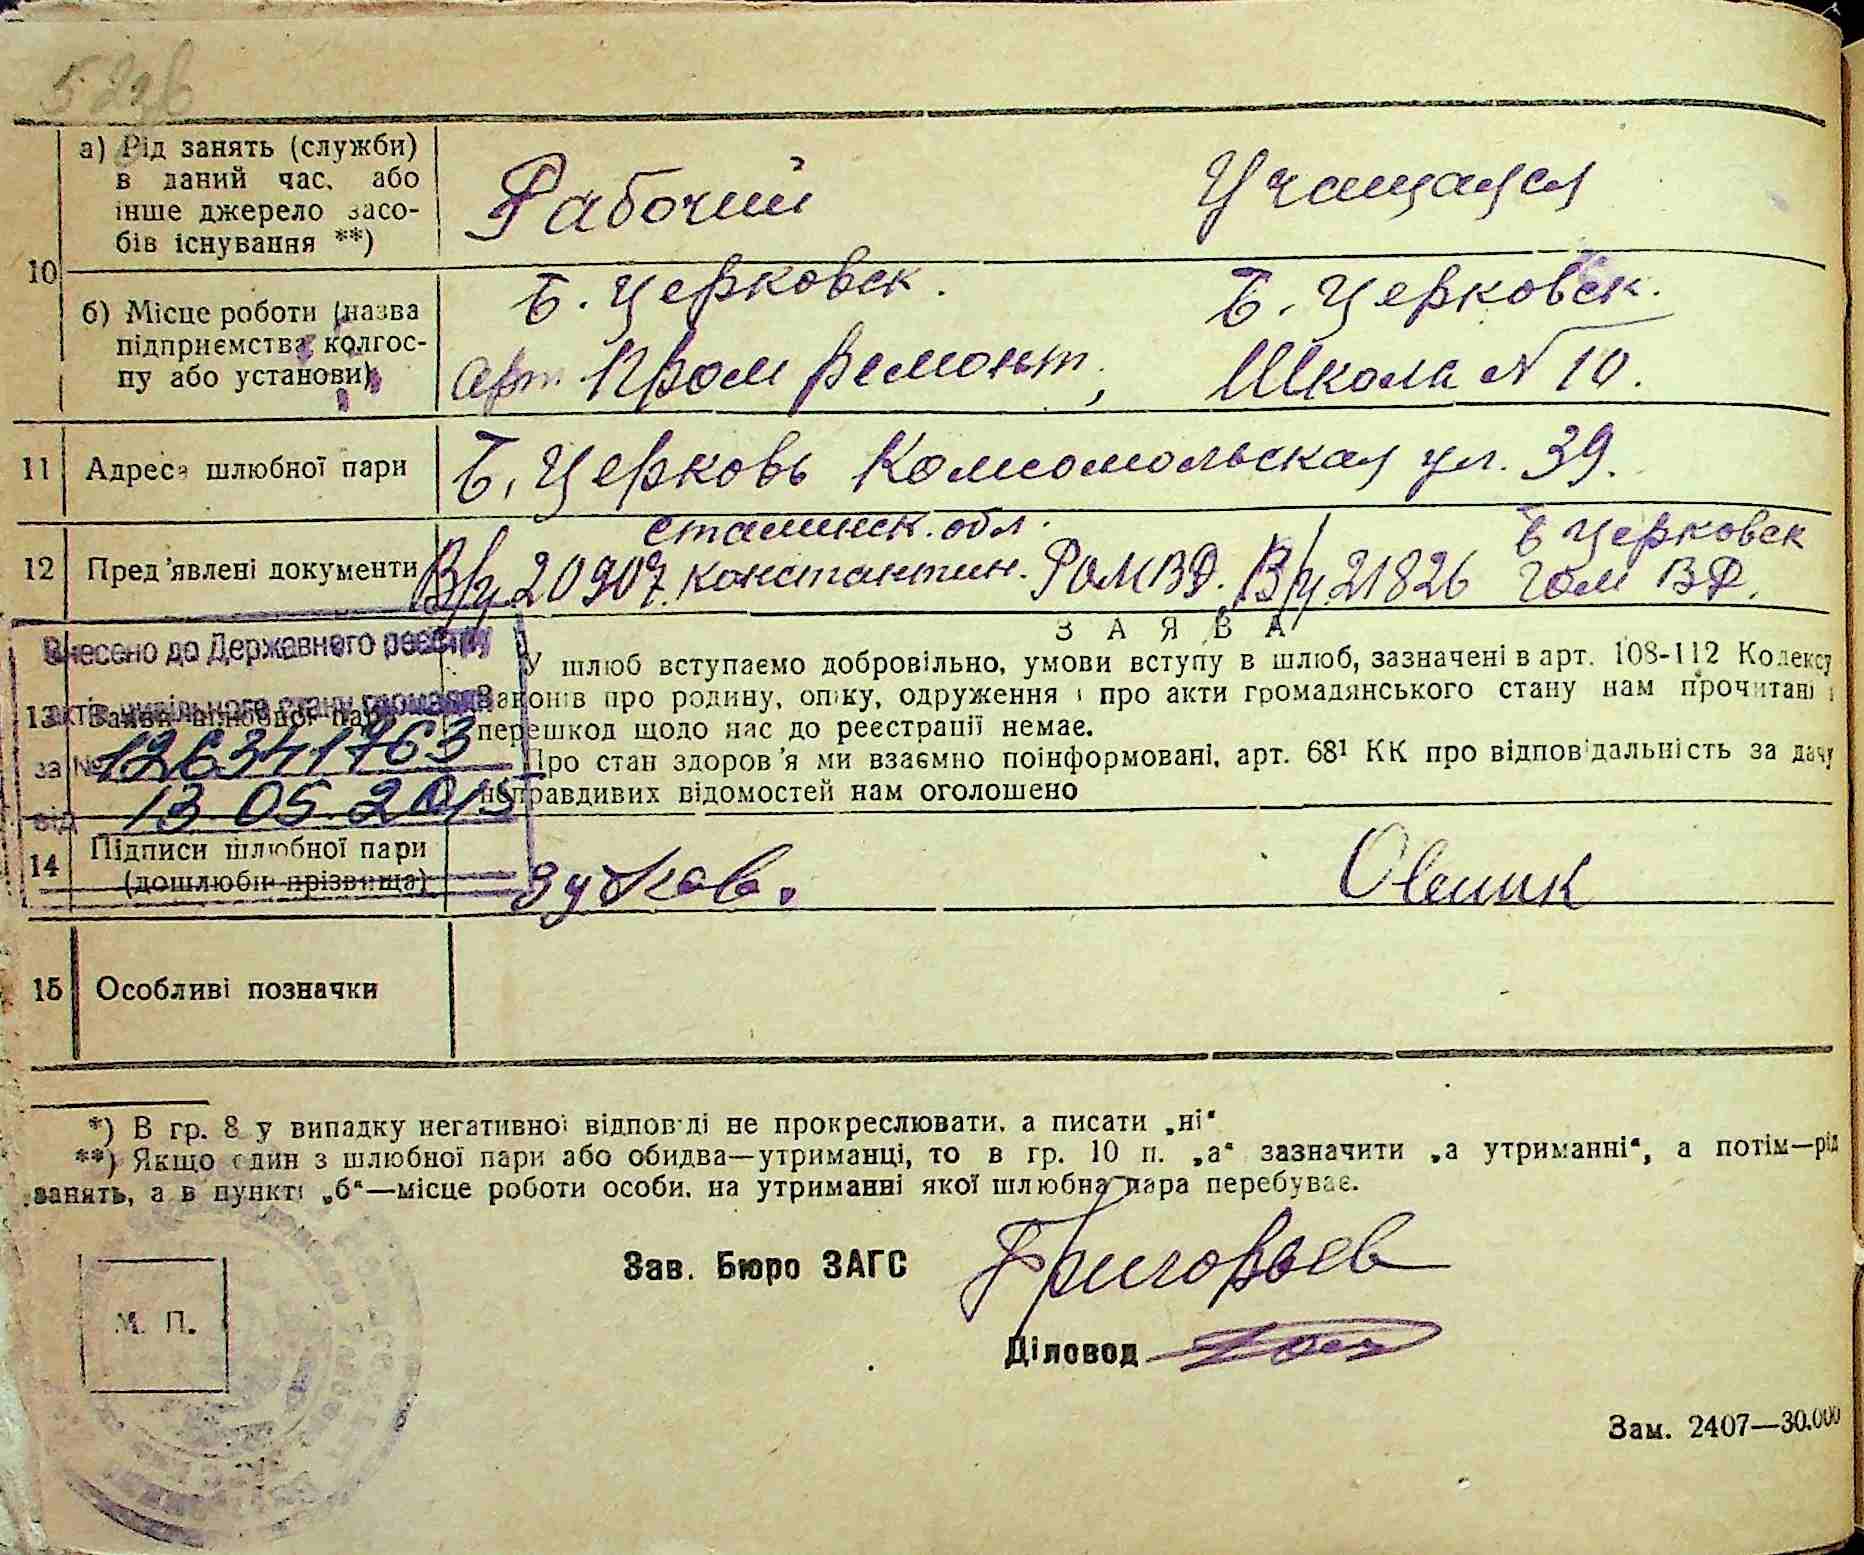 а) Рід занять (служби)
в даний час, або
інше джерело засо-
бів існування **)
Рабочий
Учащаяся
10
б) Місце роботи (назва
підприємства, колгос-
пу або установи)
Б. Церковск.
арт. Пром ремонт,
Б. Церковск.
Школа № 10.
11 Адреса шлюбної пари Б. Церковь Комсомольская ул. 39.
12 Пред'явлені документи
Сталинск. обл.
В/ч 20907. Константин. РОМВД.
Б Церковск
В/ч 21826 ГОМ ВД.
Внесено до Державного реєстру
актів цивільного стану громадян
за № 126341763
від 13 05 2015
13 Заява шлюбної пари
З А Я В А
У шлюб вступаємо добровільно, умови вступу в шлюб, зазначені в арт. 108-112 Кодексу
Законів про родину, опіку, одруження і про акти громадянського стану нам прочитані і
перешкод щодо нас до реєстрації немає.
Про стан здоров'я ми взаємно поінформовані, арт. 68¹ КК про відповідальність за дачу
неправдивих відомостей нам оголошено
14 Підписи шлюбної пари
(дошлюбні прізвища)
Зубков.
15 Особливі позначки
*) В гр. 8 у випадку негативної відповіді не прокреслювати, а писати „ні“
**) Якщо один з шлюбної пари або обидва—утриманці, то в гр. 10 п. „а“ зазначити „а утриманні“, а потім—рід
занять, а в пункті „б“—місце роботи особи, на утриманні якої шлюбна пара перебуває.
М. П.
Зав. Бюро ЗАГС Григорьев
Діловод
Зам. 2407—30.000